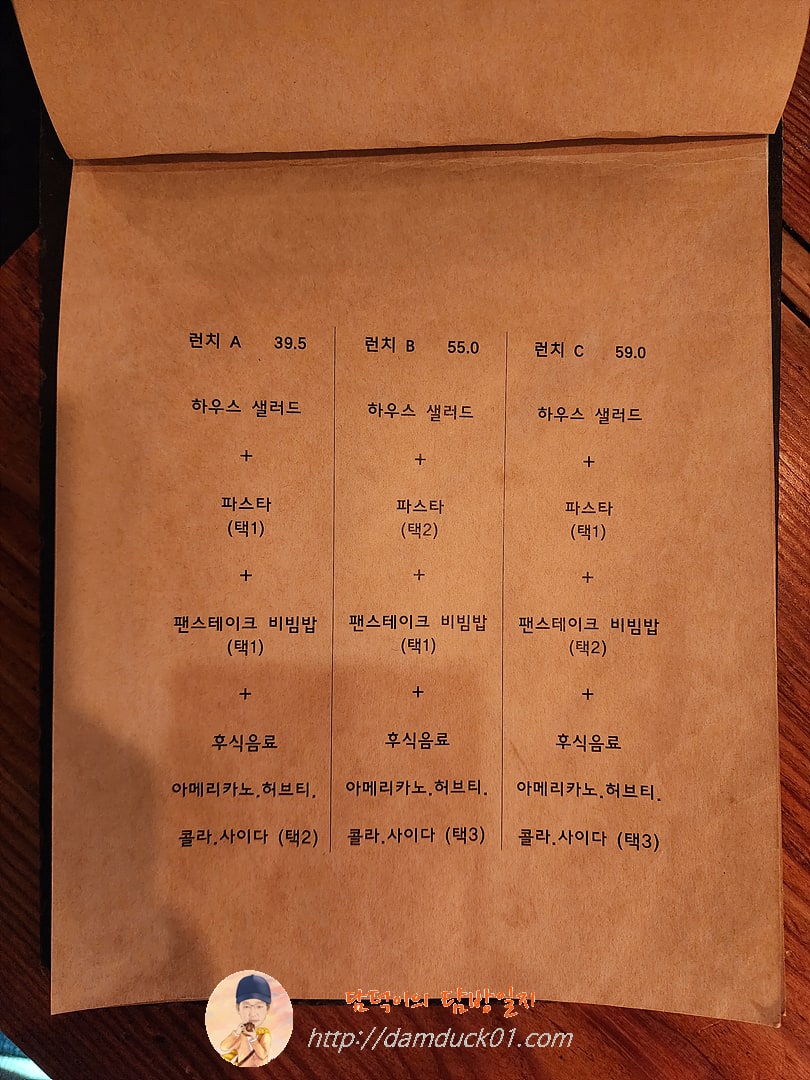 런치 A 39.5
하우스 샐러드
+
파스타
(택1)
+
팬스테이크 비빔밥
(택1)
+
후식음료
아메리카노.허브티.
콜라.사이다 (택2)
런치 B 55.0
하우스 샐러드
+
파스타
(택2)
+
팬스테이크 비빔밥
(택1)
+
후식음료
아메리카노.허브티.
콜라.사이다 (택3)
런치 C 59.0
하우스 샐러드
+
파스타
(택1)
+
팬스테이크 비빔밥
(택2)
+
후식음료
아메리카노.허브티.
콜라.사이다 (택3)
담덕이의 탐방일지
http://damduck01.com